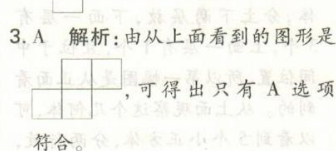 3. A 解析:由从上面看到的图形是
,可得出只有 A 选项
符合。